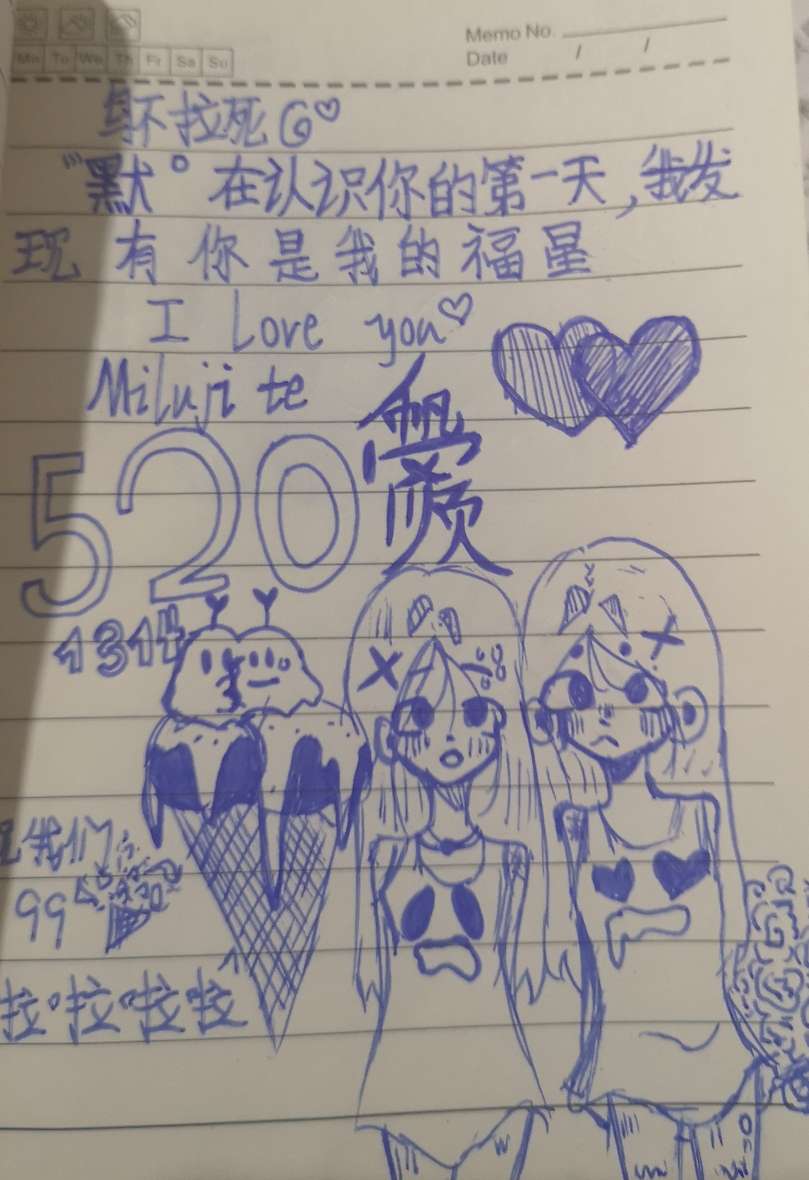 Memo No.
Mo Tu We Th Fr Sa Su
Date / /
拉死G♡
"默。在认识你的第一天,我发
现有你是我的福星
I Love you♡
Miluji te
愛
520
1314
我们
99
拉·拉·啦·拉